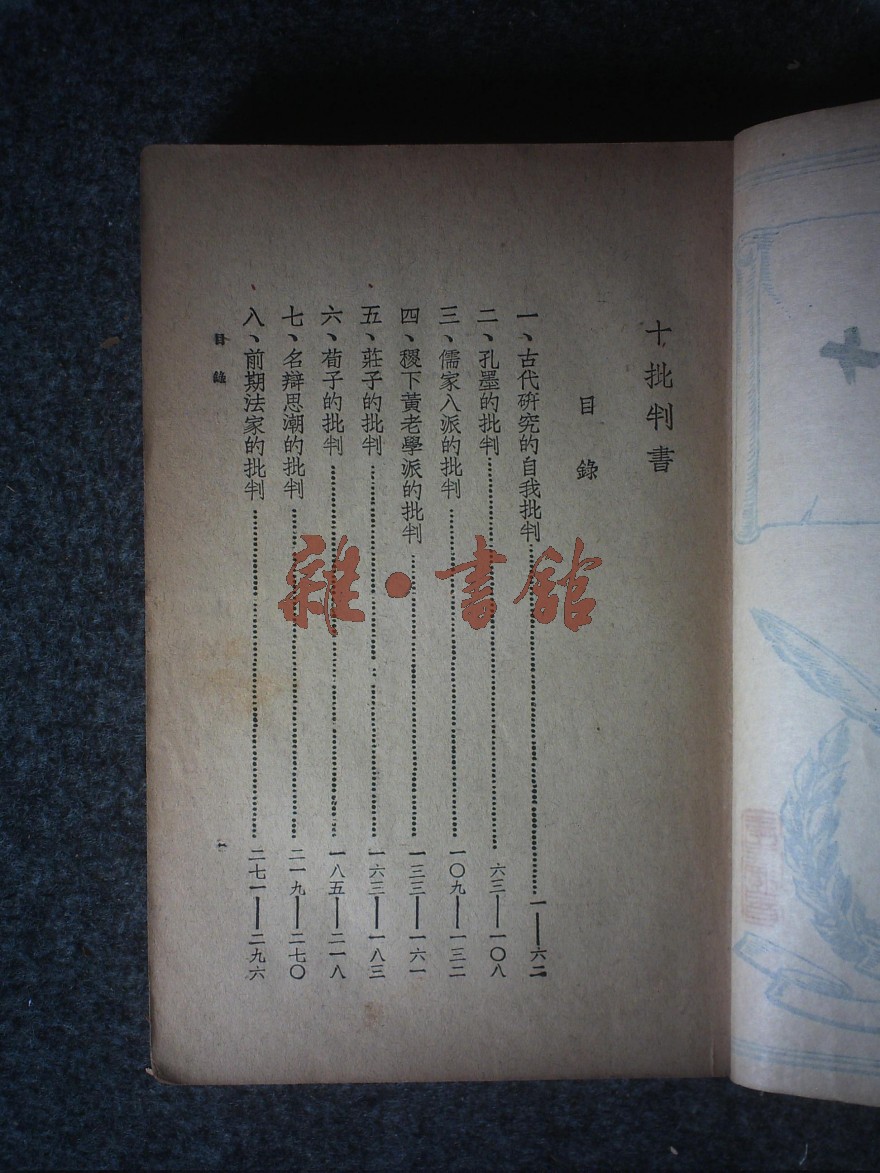 十批判書
目錄
一、古代研究的自我批判……一——六二
二、孔墨的批判……六三——一〇八
三、儒家八派的批判……一〇九——一三二
四、稷下黃老學派的批判……一三三——一六一
五、莊子的批判……一六三——一八三
六、荀子的批判……一八五——二一八
七、名辯思潮的批判……二一九——二七〇
八、前期法家的批判……二七一——二九六
目錄
一
雜·書館